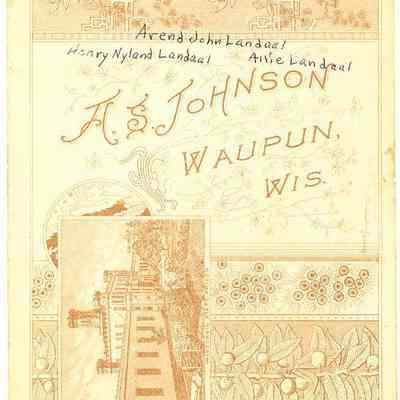 Arend John Landaal
Henry Nyland Landaal Allie Landaal
A. S. JOHNSON
WAUPUN,
WIS.